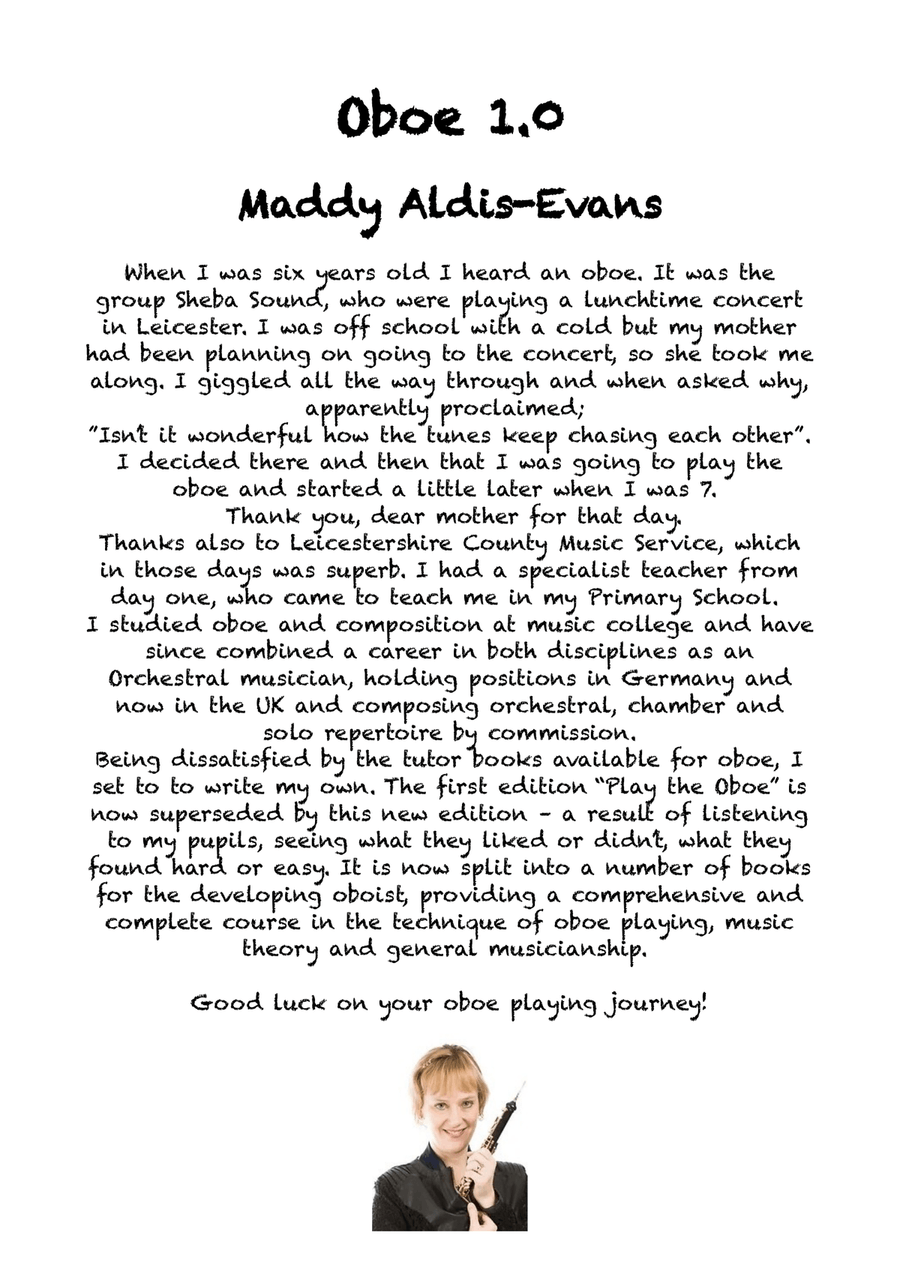 Oboe 1.0
Maddy Aldis-Evans
When I was six years old I heard an oboe. It was the
group Sheba Sound, who were playing a lunchtime concert
in Leicester. I was off school with a cold but my mother
had been planning on going to the concert, so she took me
along. I giggled all the way through and when asked why,
apparently proclaimed;
"Isn't it wonderful how the tunes keep chasing each other".
I decided there and then that I was going to play the
oboe and started a little later when I was 7.
Thank you, dear mother for that day.
Thanks also to Leicestershire County Music Service, which
in those days was superb. I had a specialist teacher from
day one, who came to teach me in my Primary School.
I studied oboe and composition at music college and have
since combined a career in both disciplines as an
Orchestral musician, holding positions in Germany and
now in the UK and composing orchestral, chamber and
solo repertoire by commission.
Being dissatisfied by the tutor books available for oboe, I
set to to write my own. The first edition “Play the Oboe” is
now superseded by this new edition – a result of listening
to my pupils, seeing what they liked or didn't, what they
found hard or easy. It is now split into a number of books
for the developing oboist, providing a comprehensive and
complete course in the technique of oboe playing, music
theory and general musicianship.
Good luck on your oboe playing journey!